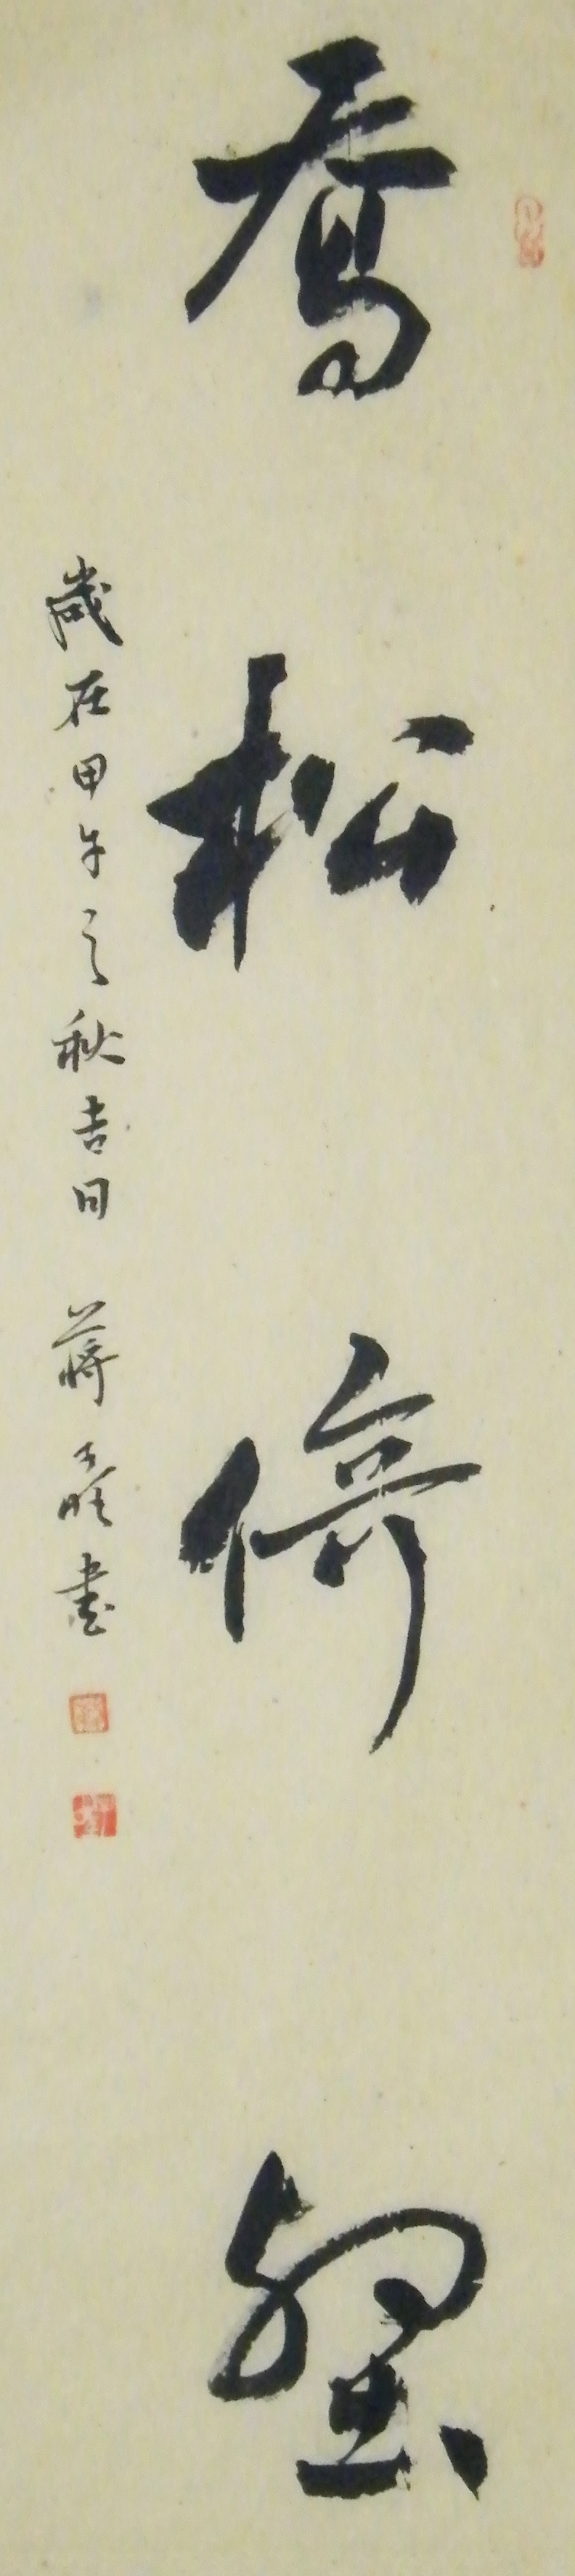 喬松倚壑
歲在甲午之秋吉日 蔣 書